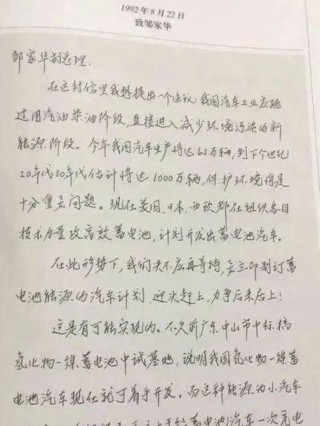 1992年8月22日
致邹家华
邹家华副总理:
在这封信里我想提出一个建议:我国汽车工业应跳
过用汽油柴油阶段,直接进入减少环境污染的新
能源阶段。今年我国汽车生产将达百万辆,到下个世纪
20年代30年代估计将达1000万辆,保护环境将是
十分重要问题。现在美国、日本、西欧都在组织各自
技术力量攻高效蓄电池,计划开发出蓄电池汽车。
在此形势下,我们决不应再等待,要立即制订蓄
电池能源的汽车计划,迎头赶上,力争后来居上!
这是有可能实现的。不久前广东中山市中标,搞
氢化物—镍蓄电池中试基地,说明我国氢化物—镍蓄
电池汽车现在就可着手开发。而这种能源的小汽车
蓄电池汽车一次充电